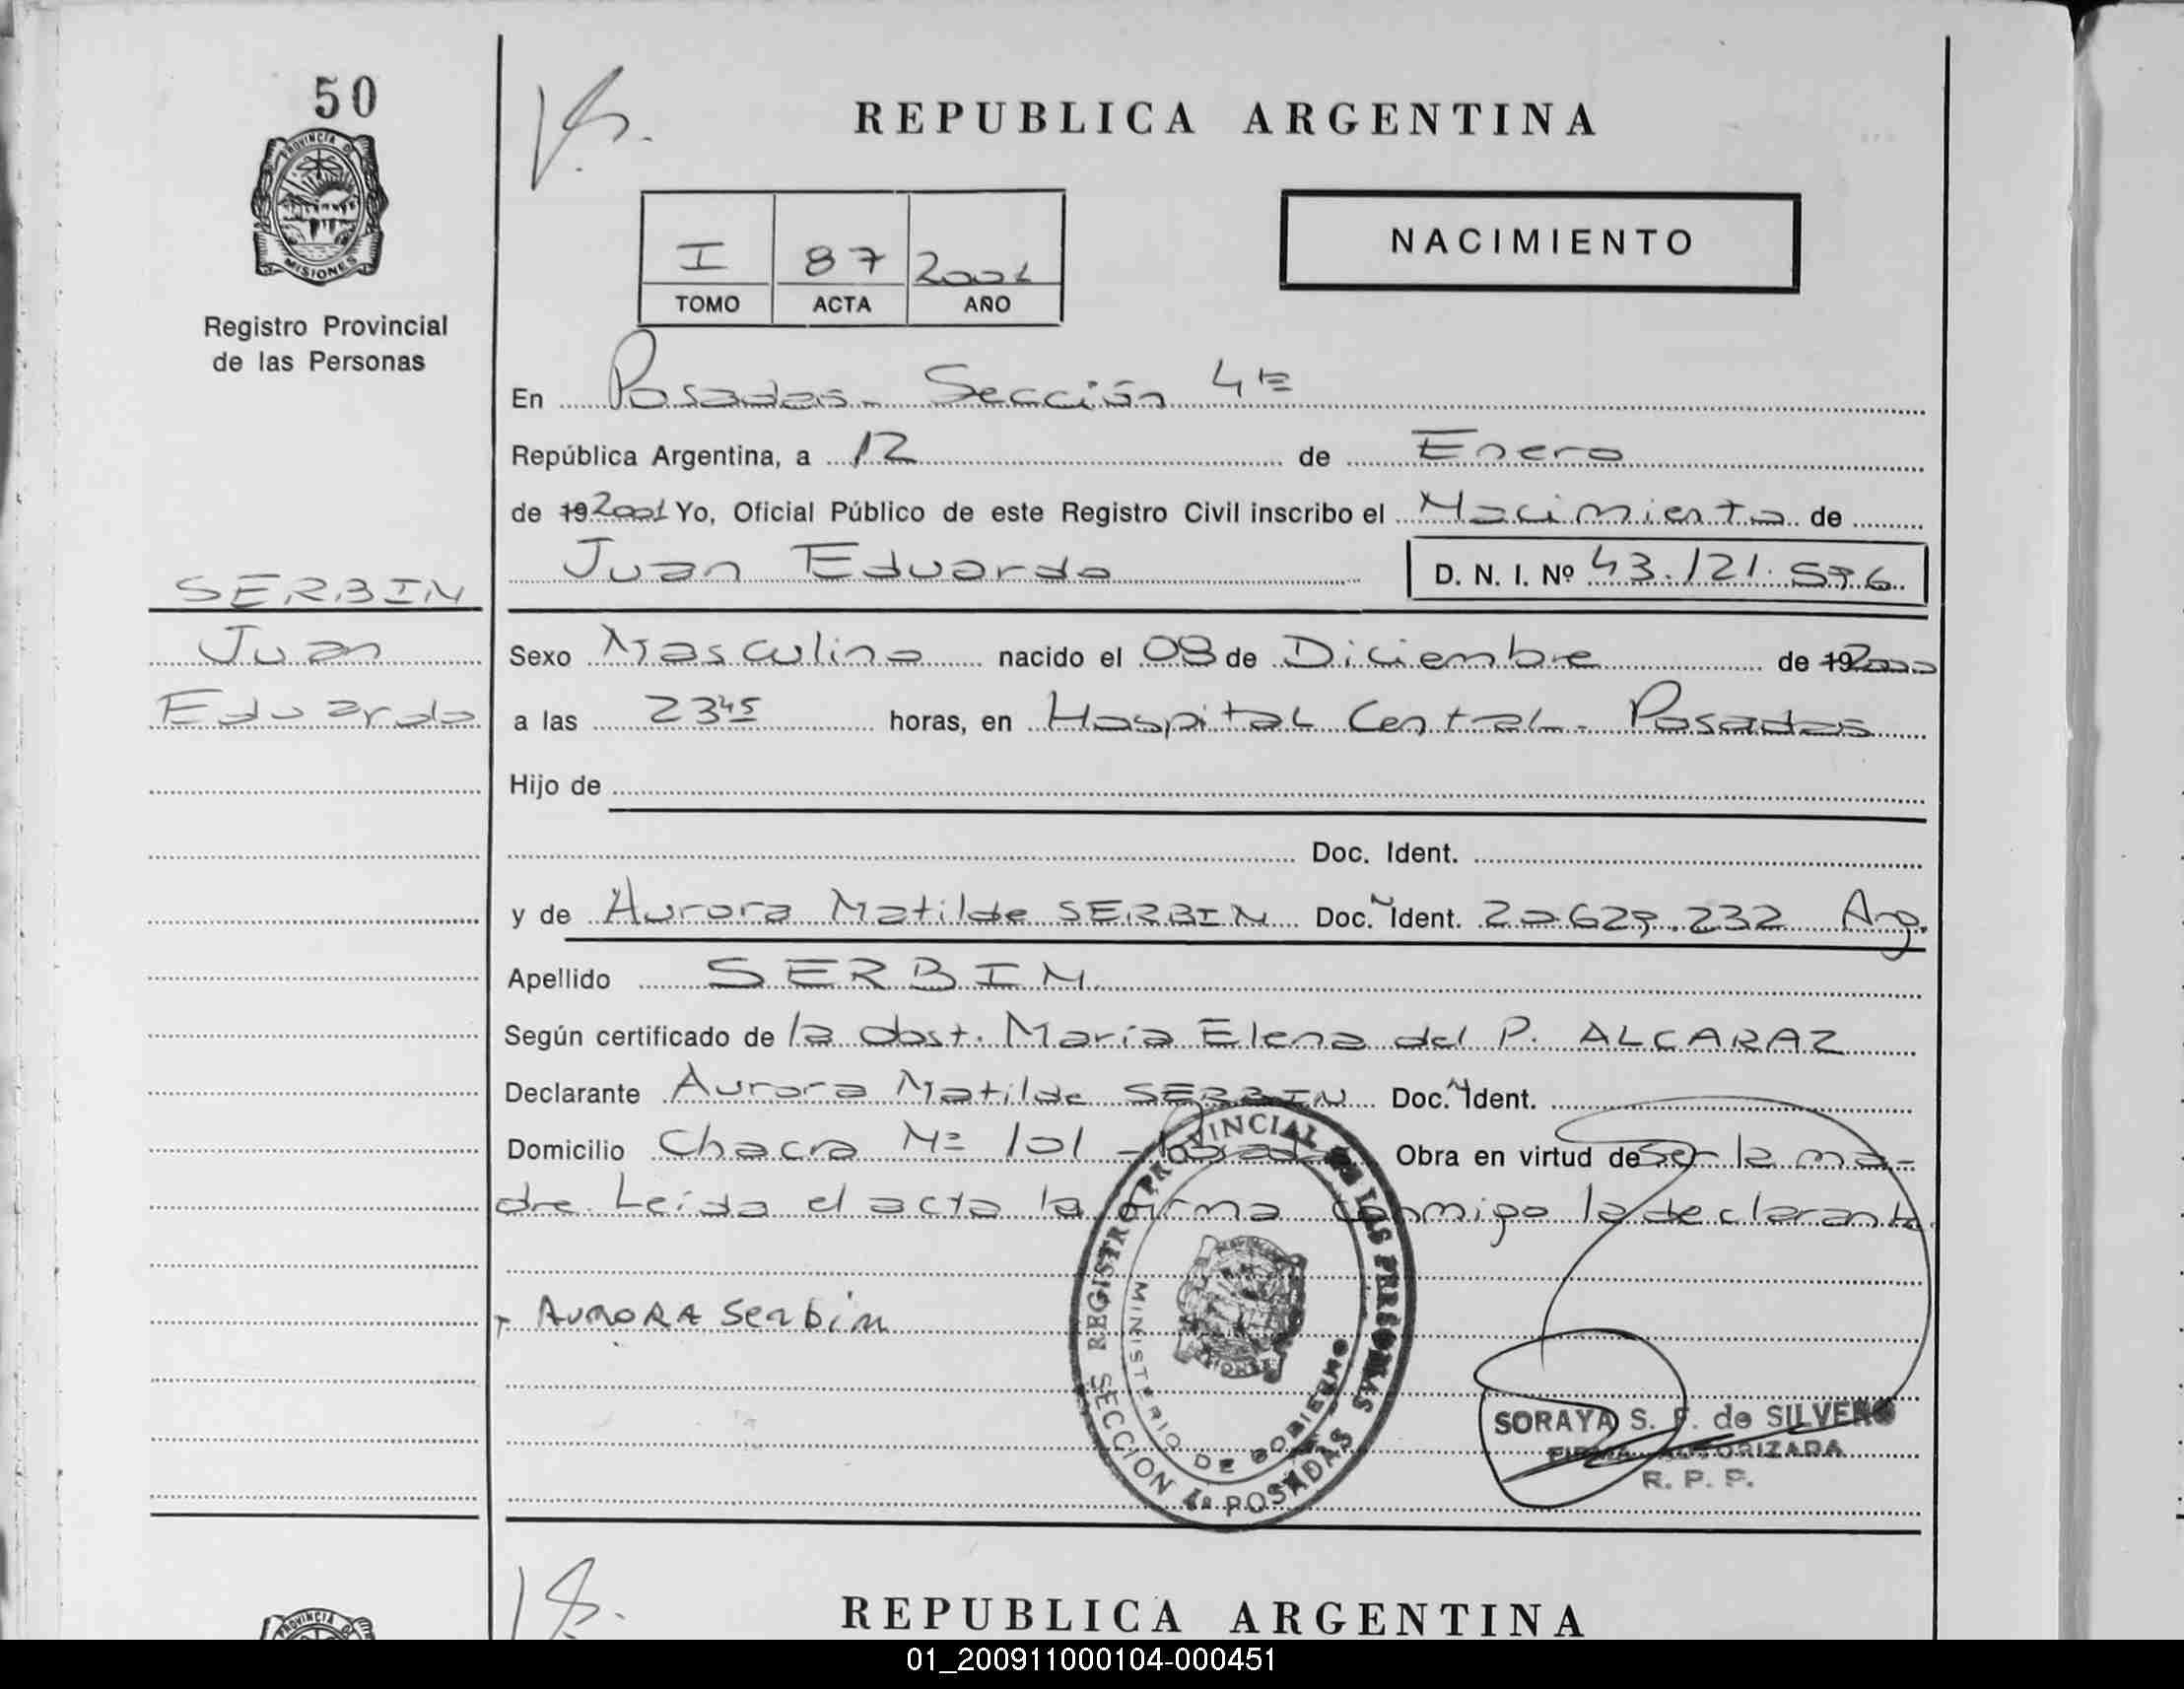 50
PROVINCIA DE
MISIONES
Registro Provincial
de las Personas
SERBIN
Juan
Eduardo
REPUBLICA ARGENTINA
I 87 2001
TOMO ACTA AÑO
NACIMIENTO
En Posadas - Sección 4ta
República Argentina, a 12 de Enero
de 19 2001 Yo, Oficial Público de este Registro Civil inscribo el Nacimiento de
Juan Eduardo D. N. I. Nº 43.121.576
Sexo Masculino nacido el 08 de Diciembre de 19 2000
a las 23 45 horas, en Hospital Central - Posadas
Hijo de
Doc. Ident.
y de Aurora Matilde SERBIN Doc. N Ident. 20.623.232 Arg.
Apellido SERBIN
Según certificado de la obst. María Elena del P. ALCARAZ
Declarante Aurora Matilde SERBIN Doc. N Ident.
Domicilio Chacra Nº 101 - Posadas Obra en virtud de ser la ma-
dre. Leída el acta la firma conmigo la declarante
AURORA Serbin
REGISTRO PROVINCIAL DE LAS PERSONAS
MINISTERIO DE GOBIERNO
SECCION 4ª POSADAS
SORAYA S. F. de SILVERO
FIRMA AUTORIZADA
R. P. P.
PROVINCIA
REPUBLICA ARGENTINA
01_200911000104-000451